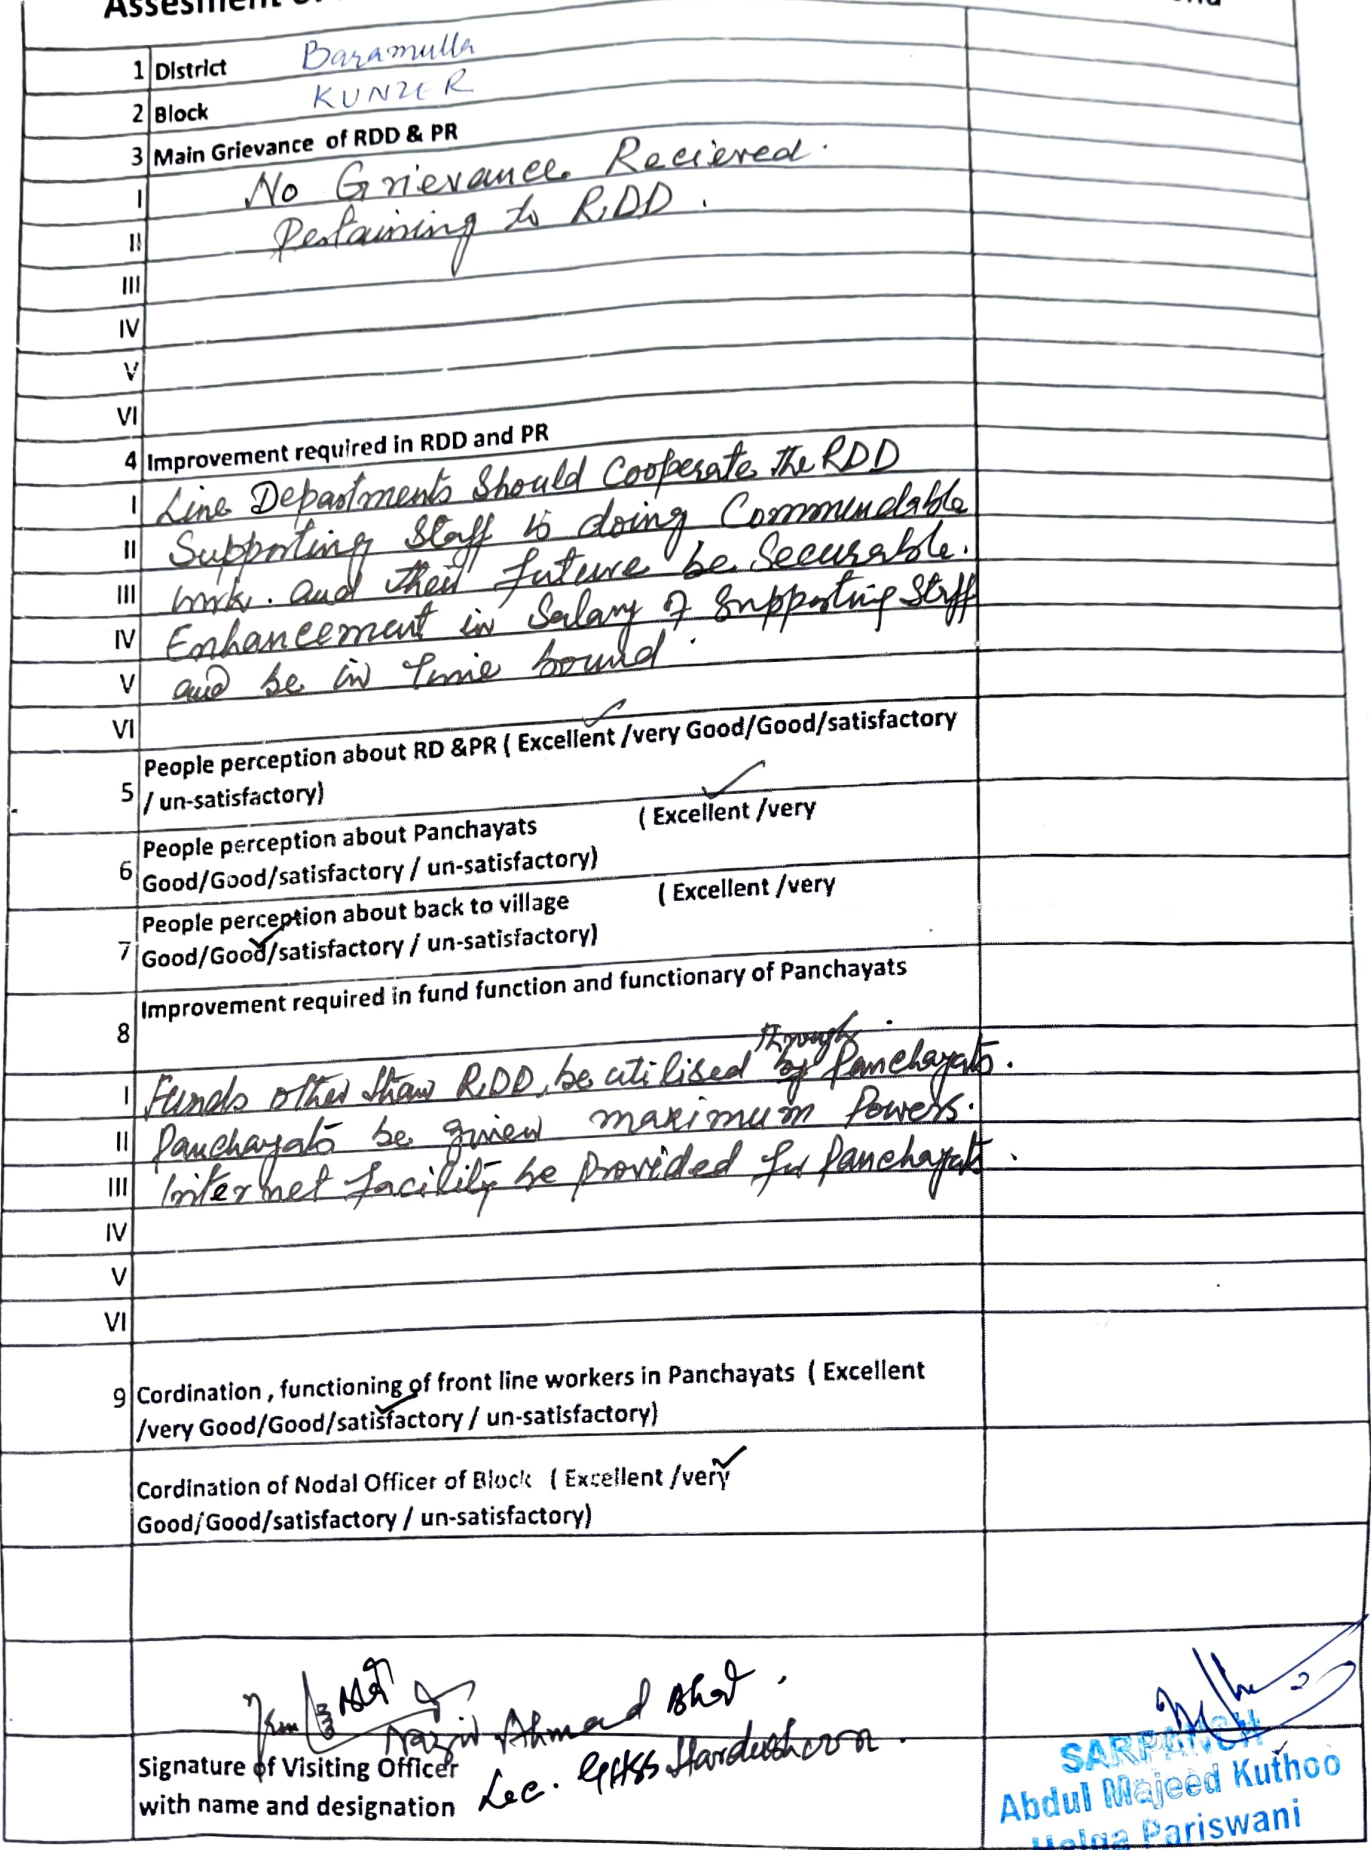 Assesment
1 District Baramulla
2 Block KUNZER
3 Main Grievance of RDD & PR
I No Grievance Recieved.
II Pertaining to R.DD.
III
IV
V
VI
4 Improvement required in RDD and PR
I Line Departments Should Cooperate the RDD
II Supporting Staff is doing Commendable
III work. and their future be Securable.
IV Enhancement in Salary of Supporting Staff
V and be in time bound.
VI
People perception about RD &PR ( Excellent /very Good/Good/satisfactory
5 / un-satisfactory)
People perception about Panchayats ( Excellent /very
6 Good/Good/satisfactory / un-satisfactory)
People perception about back to village ( Excellent /very
7 Good/Good/satisfactory / un-satisfactory)
Improvement required in fund function and functionary of Panchayats
8
through
I Funds other than R.DD, be utilised by Panchayats.
II Panchayats be given maximum Powers.
III Internet facility be provided for Panchayats.
IV
V
VI
9 Cordination , functioning of front line workers in Panchayats ( Excellent
/very Good/Good/satisfactory / un-satisfactory)
Cordination of Nodal Officer of Block ( Excellent /very
Good/Good/satisfactory / un-satisfactory)
Nazir Ahmad Bhat.
Signature of Visiting Officer
with name and designation Lec. GHSS
SARPANCH
Abdul Majeed Kuthoo
Pariswani